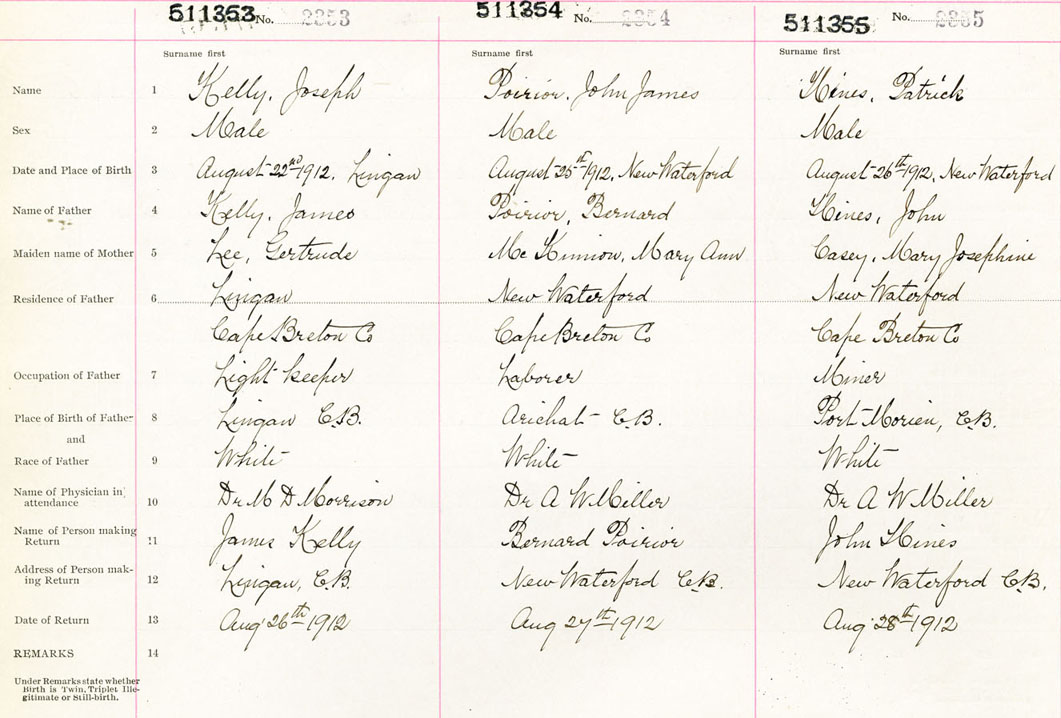 511353 No. 2353 511354 No. 2354 511355 No. 2355
Surname first Surname first Surname first
Name 1 Kelly, Joseph Poirior, John James Hines, Patrick
Sex 2 Male Male Male
Date and Place of Birth 3 August 22nd 1912, Lingan August 25th 1912, New Waterford August 26th 1912, New Waterford
Name of Father 4 Kelly, James Poirior, Bernard Hines, John
Maiden name of Mother 5 Lee, Gertrude Mc Kinnion, Mary Ann Casey, Mary Josephine
Residence of Father 6 Lingan New Waterford New Waterford
Cape Breton Co Cape Breton Co Cape Breton Co
Occupation of Father 7 Light keeper Laborer Miner
Place of Birth of Father 8 Lingan C.B. Arichat C.B. Port Morien, C.B.
and
Race of Father 9 White White White
Name of Physician in
attendance 10 Dr M D Morrison Dr A W Miller Dr A W Miller
Name of Person making
Return 11 James Kelly Bernard Poirior John Hines
Address of Person mak-
ing Return 12 Lingan, C.B. New Waterford C.B. New Waterford C.B.
Date of Return 13 Aug 26th 1912 Aug 27th 1912 Aug 28th 1912
REMARKS 14
Under Remarks state whether
Birth is Twin, Triplet Ille-
gitimate or Still-birth.